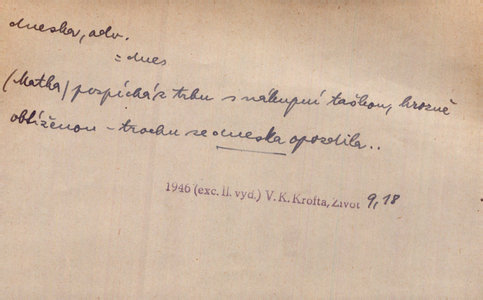 dneska, adv.
= dnes
(Matka) pospíchá z trhu s nákupní taškou, hrozně
obtíženou – trochu se dneska opozdila..
1946 (exc. II. vyd.) V. K. Krofta, Život 9, 18